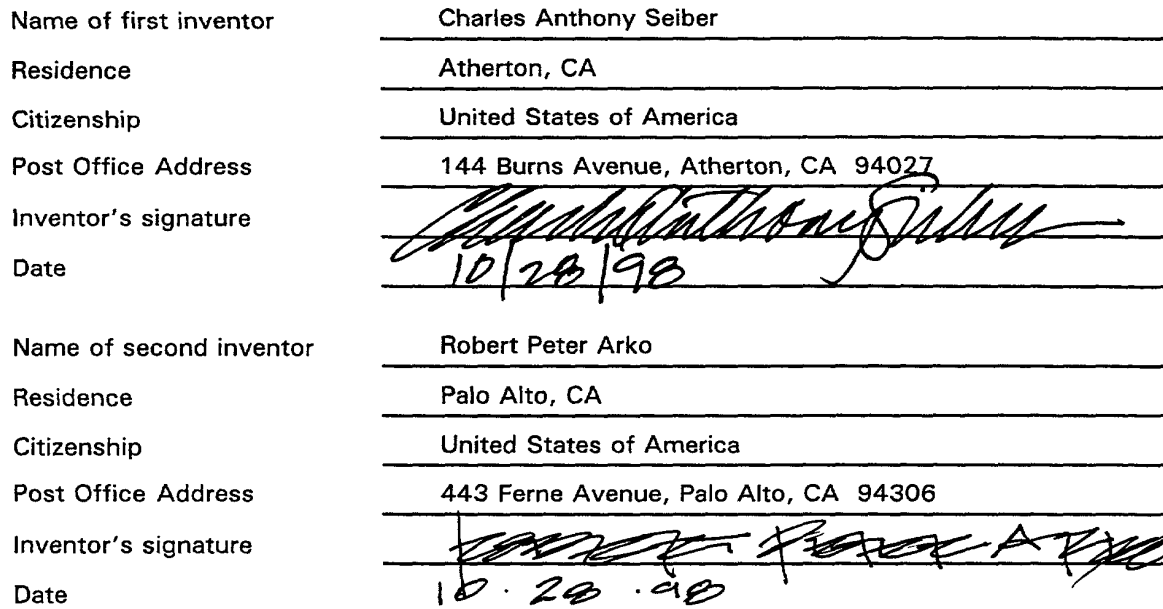 Name of first inventor Charles Anthony Seiber
Residence Atherton, CA
Citizenship United States of America
Post Office Address 144 Burns Avenue, Atherton, CA 94027
Inventor's signature Charles Anthony Seiber
Date 10/28/98
Name of second inventor Robert Peter Arko
Residence Palo Alto, CA
Citizenship United States of America
Post Office Address 443 Ferne Avenue, Palo Alto, CA 94306
Inventor's signature Robert Peter Arko
Date 10.28.98